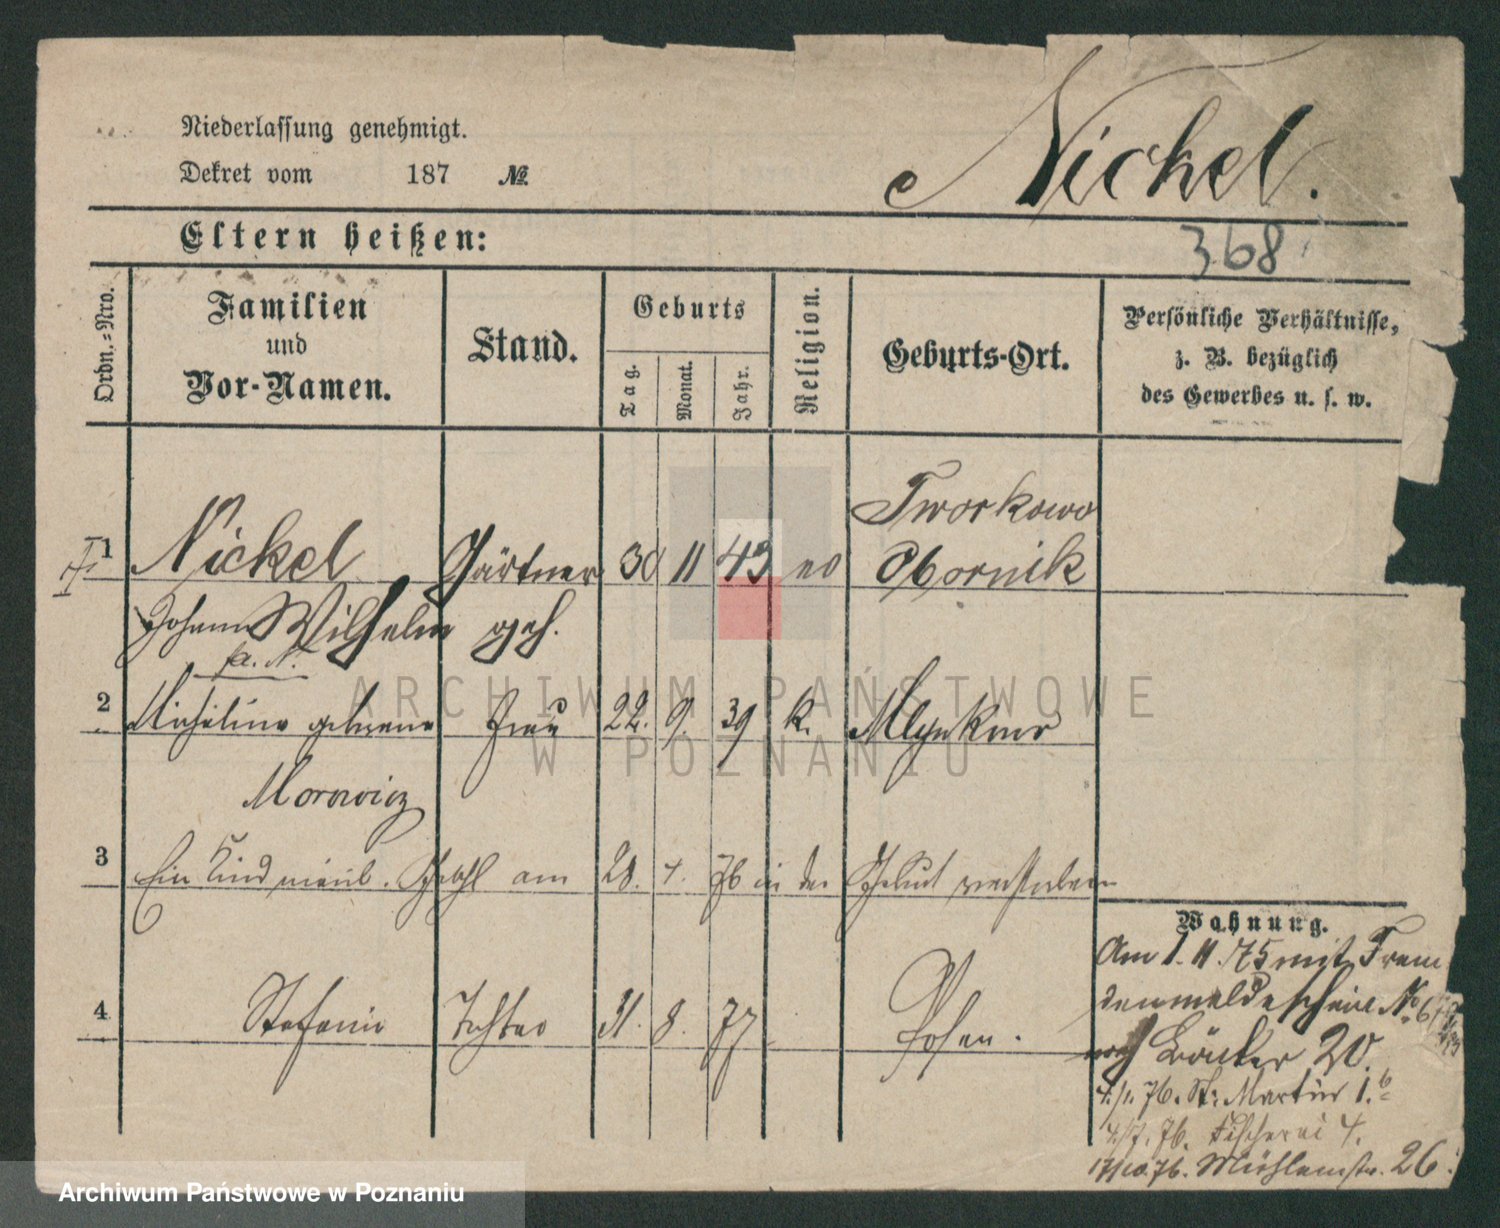 Niederlassung genehmigt.
Dekret vom 187 №
Nickel.
Eltern heißen:
368
Ordn.-Nro.
Familien und Vor-Namen.
Stand.
Geburts
Tag.
Monat.
Jahr.
Religion.
Geburts-Ort.
Persönliche Verhältnisse,
z. B. bezüglich
des Gewerbes u. s. w.
Tworkowo
1 Nickel Gärtner 30 11 43 ev Obornik
Johann Wilhelm
2 Micheline geborene Frau 22. 9. 39 k. Mlynkowo
Morowicz
3 Ein Kind männl. Geschl am 28. 4. 76 in der Geburt verstorben
4 Stefanie Tochter 31. 8. 77 Posen.
Wohnung.
Am 1. 11. 75 mit Frem
denmeldeschein No
nach 20.
4./1. 76. St: Martin 1.
4./7. 76. Fischerei 4.
17/10 76. Mühlenstr. 26.
ARCHIWUM PAŃSTWOWE
W POZNANIU
Archiwum Państwowe w Poznaniu